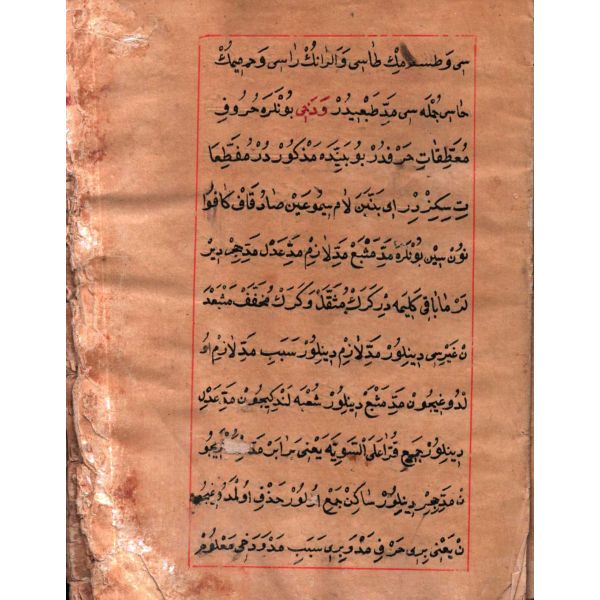 سی وَ طسمڭ طاسی وَ الرانڭ راسی وَ حمیمڭ
حاسی جُمْلَه سی مَدِّ طَبْعِیدُرْ وَدَخِی بُونْلَرَه حُرُوفِ
مُعَطِّقَاتِ حَرْفدُرْ بُو بَیْنِدَه مَذْكُورْ دُرْ مُقَطَّعَا
تِ سِكِزْدِرْ اى بَیْتَیْن لَامْ مِیمُو عَیْن صَادُ قَافْ كَافُو
نُونْ سِینْ بُونْلَرَه مَدِّ مُشْبَعْ مَدِّ لَازِمْ مَدِّ عَدْلْ مَدِّ حِجْز دِیرْ
لَرْ مَا بَاقِی كَلِیمَه دِرْ كَرَكْ مُثَقَّلْ وَ كَرَكْ مُخَفَّفْ مُشْبَعْدَ
نْ غَیْرِسِی دِینِلُورْ مَدِّ لَازِمْ دِینِلُورْ سَبَبِ مَدِّ لَازِمْ اُو
لْدُوغِیچُونْ مَدِّ مُشْبَعْ دِینِلُورْ شُعْبَه لَنْدِكِیچُونْ مَدِّ عَدْلْ
دِینِلُورْ جَمِیعِ قُرَّا عَلَى التَّسْوِیَه یَعْنِی بَرَابَرْ مَدِّ
نْ مَدِّ حِجْز دِینِلُورْ سَاكِنْ جَمْعْ اُولُورْ حَذْفِ اُولْمَدُوغِیچُو
نْ یَعْنِی بِرِی حَرْفِ مَدْ وَ بِرِی سَبَبِ مَدْ وَدَخِی مَعْلُومْ